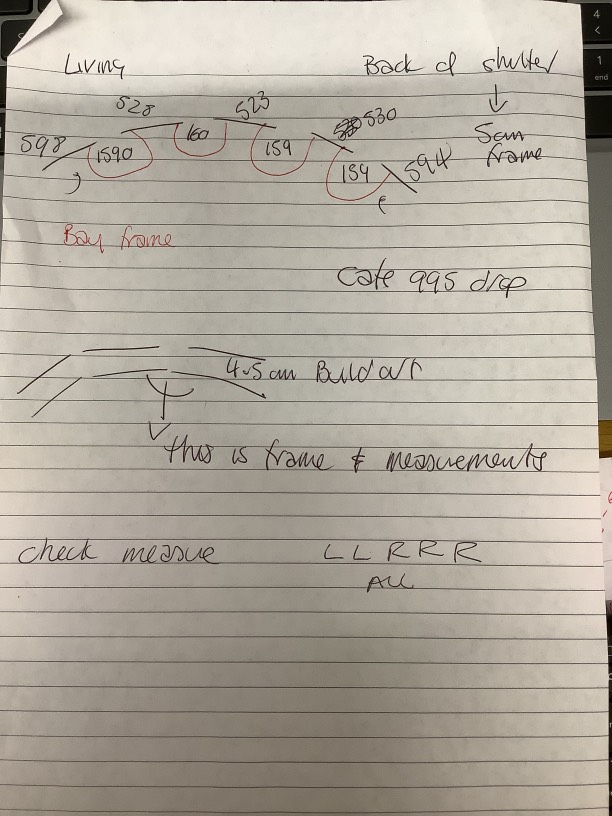 Living
Back of shutter
528
523
530
5cm
frame
598
1590
160
159
159
594
Bay frame
Cafe 995 drop
4.5cm Build out
this is frame & measurements
check measure
L L R R R
ALL
4
<
1
end